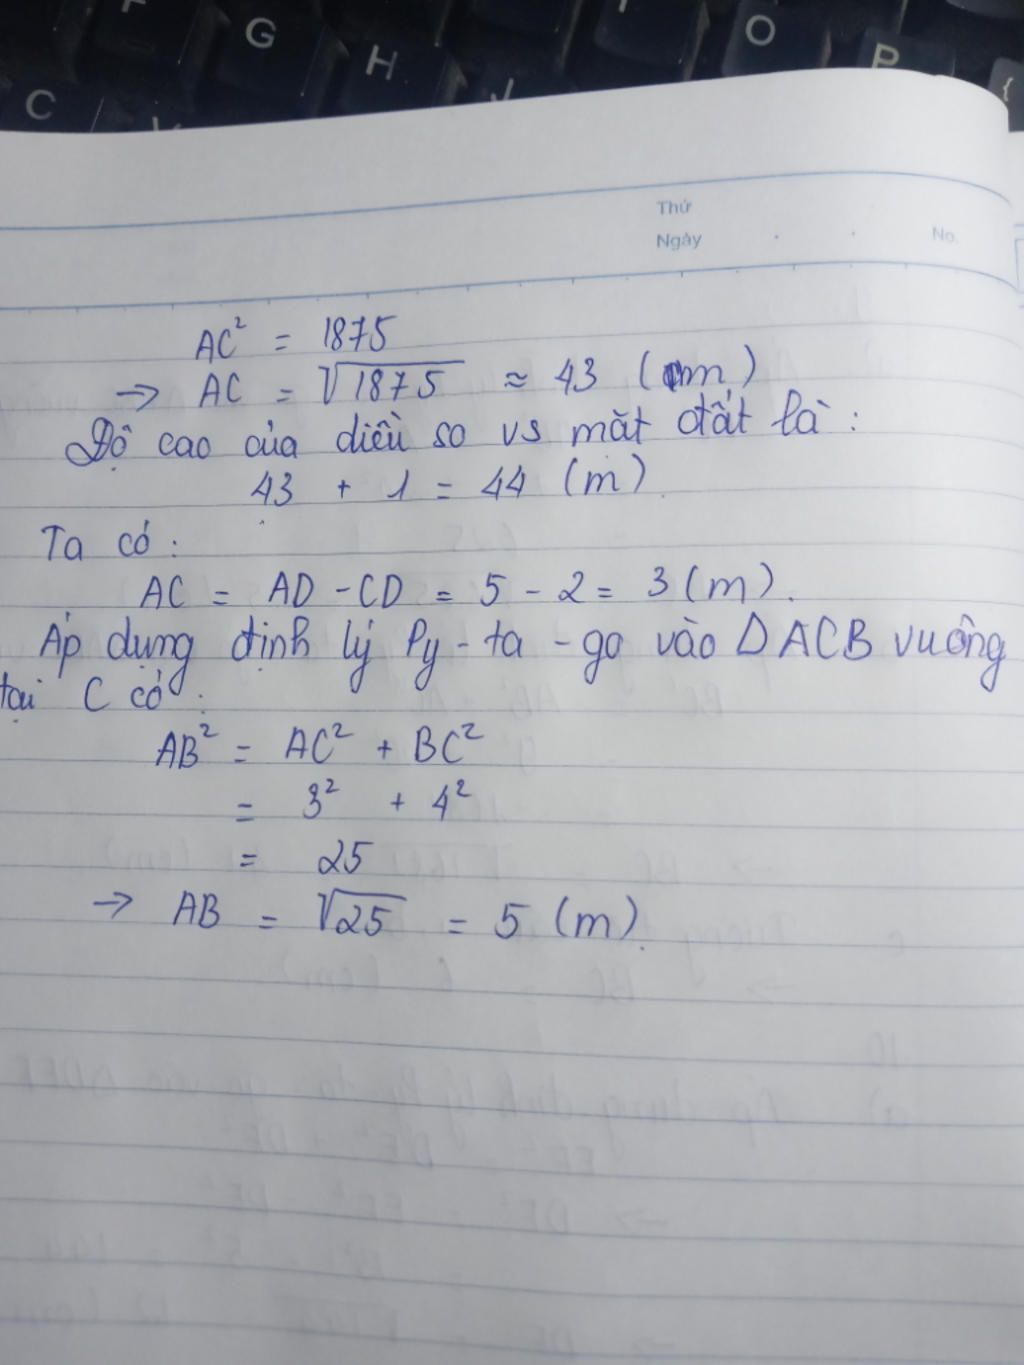 G
H
J
O
P
{
C
Thứ
Ngày
No.
AC² = 1875
→ AC = √1875 ≈ 43 (m)
Độ cao của diều so vs mặt đất là :
43 + 1 = 44 (m)
Ta có :
AC = AD - CD = 5 - 2 = 3 (m).
Áp dụng định lý Py - ta - go vào Δ ACB vuông
tại C có :
AB² = AC² + BC²
= 3² + 4²
= 25
→ AB = √25 = 5 (m).